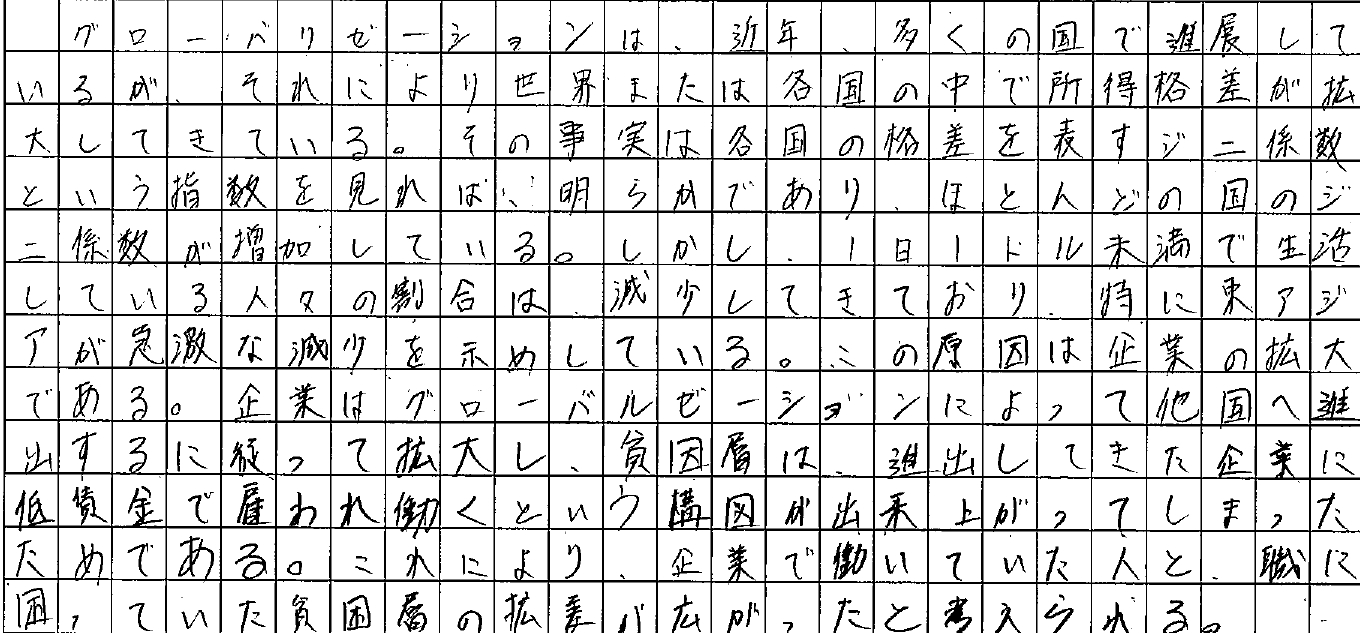 グローバリゼーションは、近年、多くの国で進展して
いるが、それにより世界または各国の中で所得格差が拡
大してきている。その事実は各国の格差を表すジニ係数
という指数を見ればい明らかであり、ほとんどの国のジ
ニ係数が増加している。しかし、1日1ドル未満で生活
している人々の割合は、減少してきており、特に東アジ
アが急激な減少を示めしている。この原因は企業の拡大
である。企業はグローバルゼーションによって他国へ進
出するに従って拡大し、貧困層は、進出してきた企業に
低賃金で雇われ働くという構図が出来上がってしまった
ためである。これにより、企業で働いていた人と、職に
困っていた貧困層の拡差が広がったと考えられる。